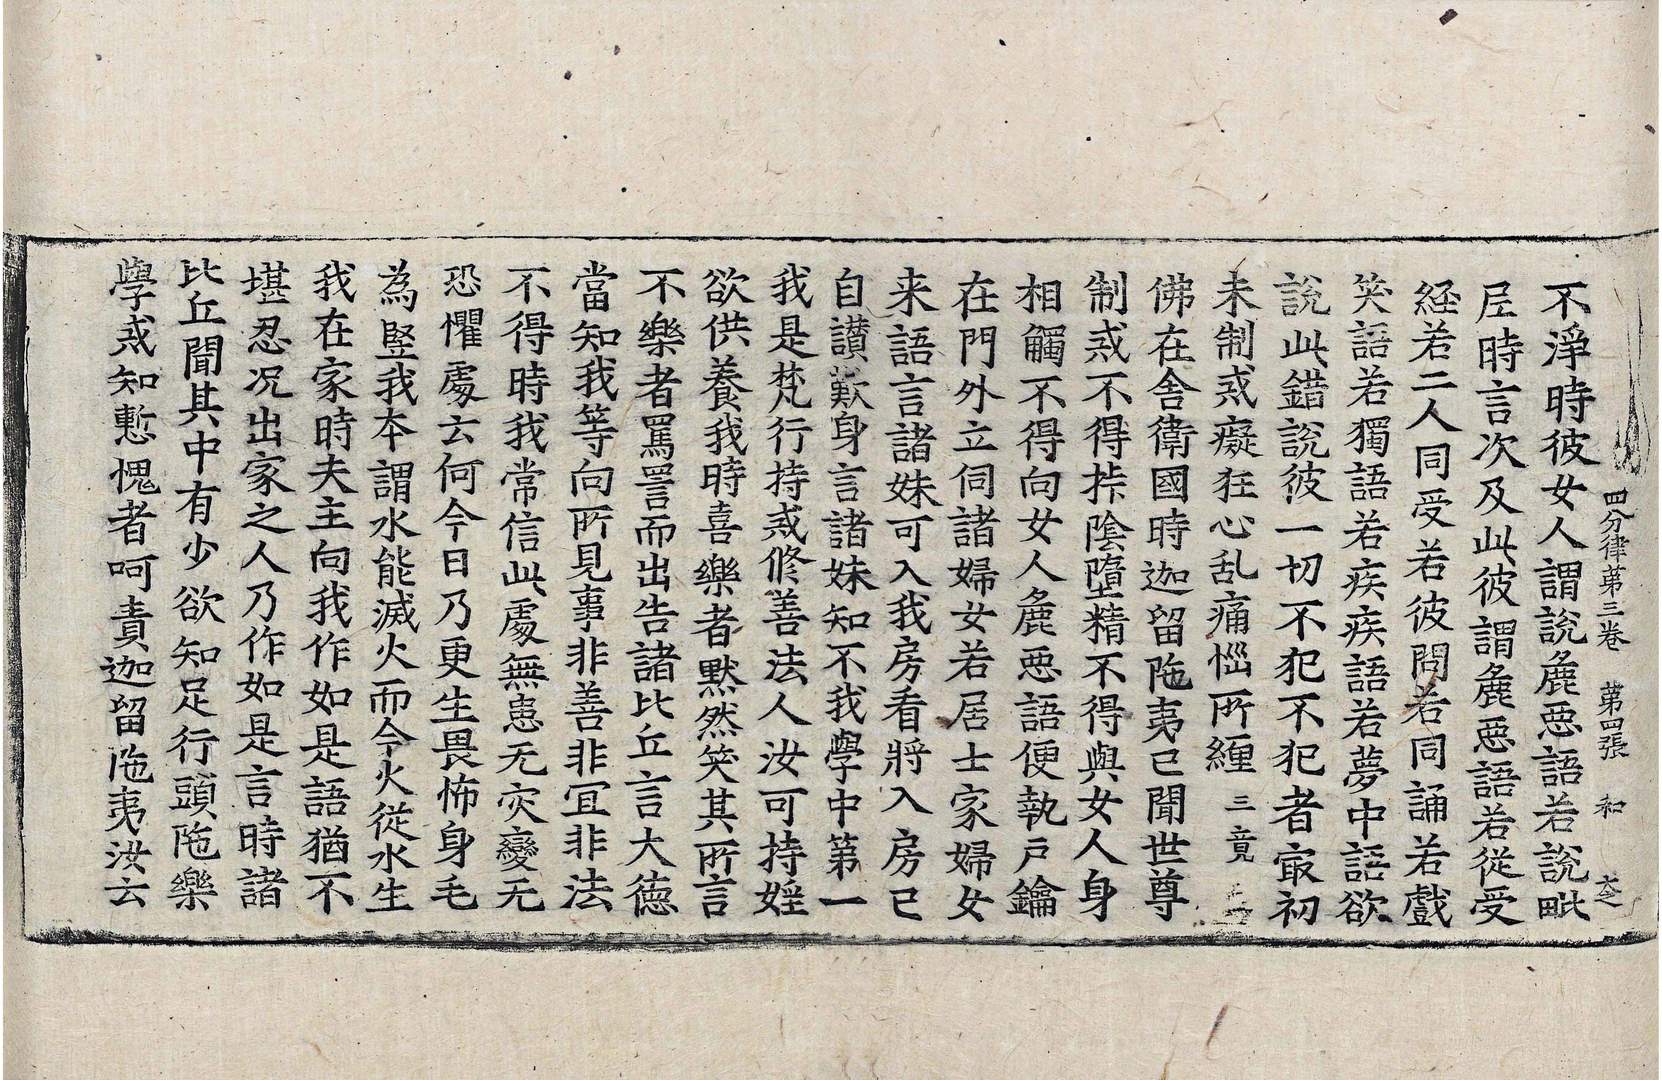 四分律第三卷　第四張　和
不淨時彼女人謂說麁惡語若說毗
尼時言次及此彼謂麁惡語若從受
経若二人同受若彼問若同誦若戲
笑語若獨語若疾疾語若夢中語欲
說此錯說彼一切不犯不犯者㝡初
未制戒癡狂心乱痛惱所纏 三竟
佛在舍衛國時迦留陁夷已聞世尊
制戒不得𢪛陰墮精不得與女人身
相觸不得向女人麁惡語便執戶鑰
在門外立伺諸婦女若居士家婦女
来語言諸妹可入我房看將入房已
自讃歎身言諸妹知不我學中第一
我是梵行持戒修善法人汝可持婬
欲供養我時喜樂者默然笑其所言
不樂者罵詈而出告諸比丘言大德
當知我等向所見事非善非冝非法
不得時我常信此處無患无灾變无
恐懼處云何今日乃更生畏怖身毛
為竪我本謂水能滅火而今火從水生
我在家時夫主向我作如是語猶不
堪忍况出家之人乃作如是言時諸
比丘聞其中有少欲知足行頭陁樂
學戒知慙愧者呵責迦留陁夷汝云